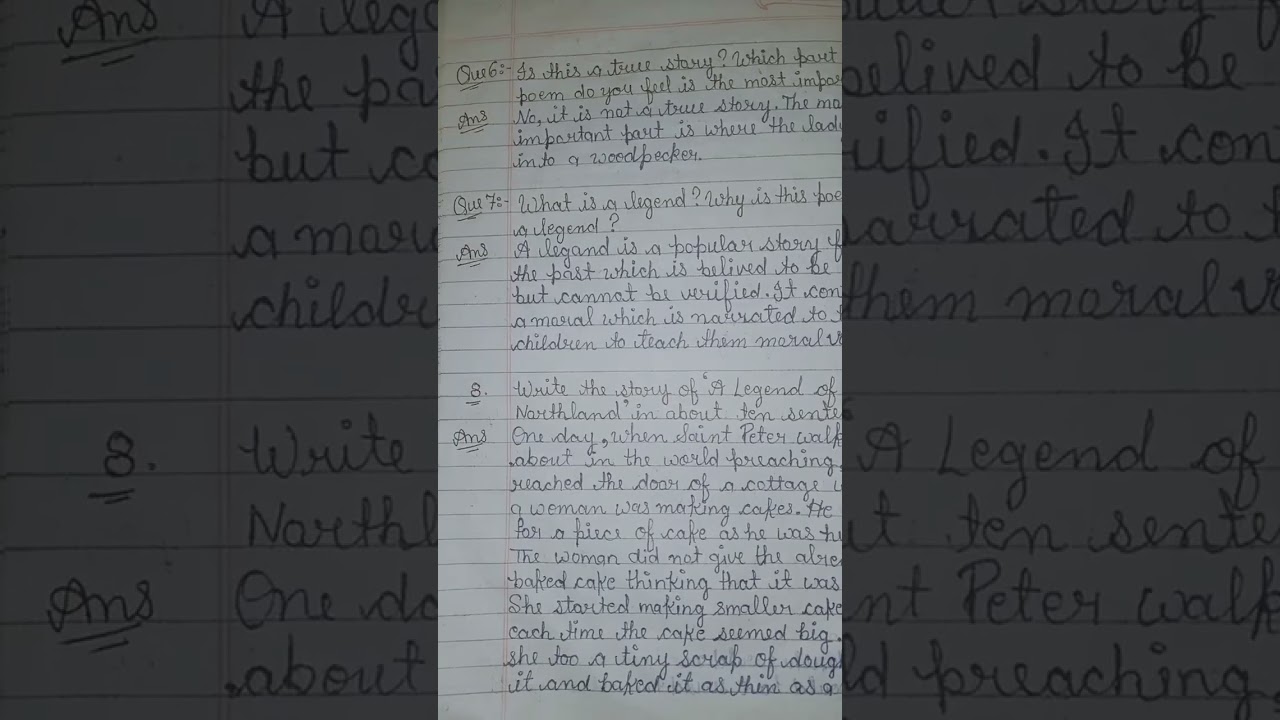 Que 6:- Is this a true story? Which part
poem do you feel is the most impor
Ans No, it is not a true story. The mo
important part is where the lad
into a woodpecker.
Que 7:- What is a legend? Why is this poe
a legend?
Ans A legand is a popular story f
the past which is belived to be
but cannot be verified. It con
a moral which is narrated to t
children to teach them moral v
8. Write the story of 'A Legend of
Northland' in about ten sente
Ans One day, when Saint Peter walk
about in the world preaching,
reached the door of a cottage w
a woman was making cakes. He
for a piece of cake as he was hu
The woman did not give the alre
baked cake thinking that it was
She started making smaller cake
each time the cake seemed big.
she too a tiny scrap of dough
it and baked it as thin as a